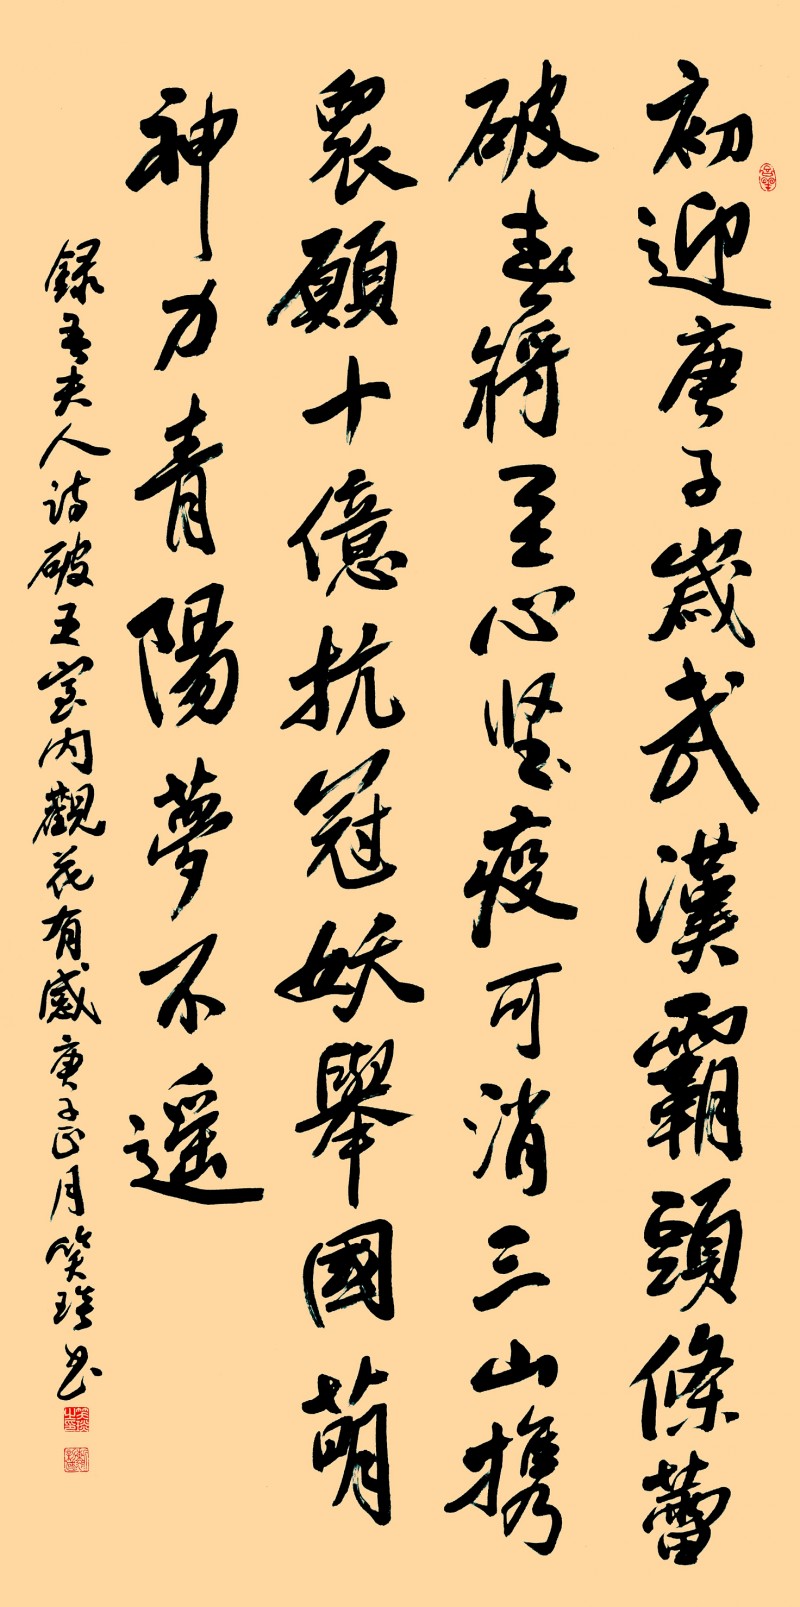 初迎庚子歲武漢霸頭條蕾
破春將至心坚疫可消三山携
衆願十億抗冠妖舉國萌
神力青陽夢不遥
錄吾夫人诗破五室内觀花有感庚子正月笑珍书